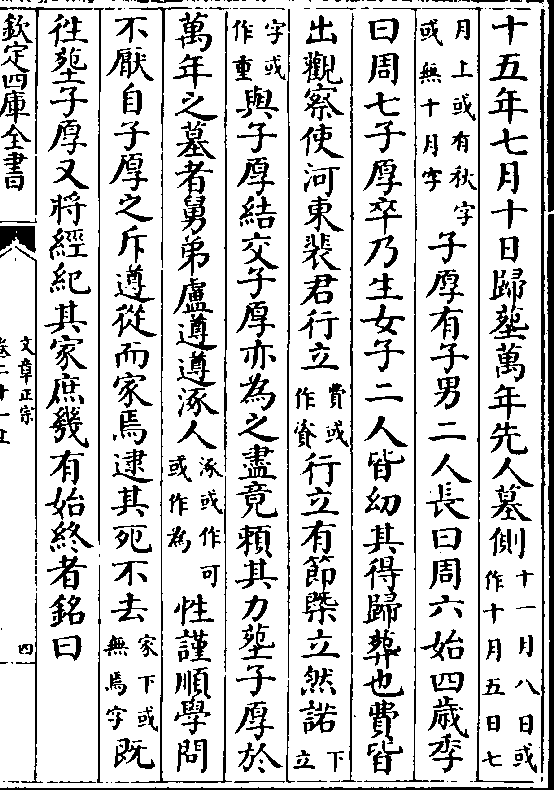 十五年七月十日歸塟萬年先人墓側十一月八日或作十月五日七
月上或有秋字或無十月字子厚有子男二人長曰周六始四歳季
曰周七子厚卒乃生女子二人皆幼其得歸葬也費皆
出觀察使河東裴君行立費或作資行立有節槩立然諾下立
字或作重與子厚結交子厚亦為之盡竟頼其力塟子厚於
萬年之墓者舅弟盧遵遵涿人涿或作可或作為性謹順學問
不厭自子厚之斥遵從而家焉逮其死不去家下或無焉字既
徃塟子厚又將經紀其家庶幾有始終者銘曰
欽定四庫全書
文章正宗
四